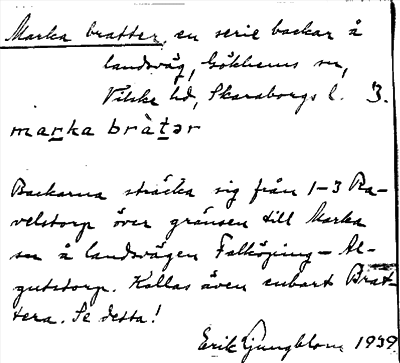 Marka bratter, en serie backar å
landsväg, Gökhems sn,
Vilske hd, Skaraborgs l. 3.
maṟka bràt̲ər
Backarna sträcka sig från 1–3 Ra-
velstorp över gränsen till Marka
sn å landsvägen Falköping – Al-
gutstorp. Kallas även enbart Brat-
tera. Se detta!
Erik Ljungblom 1939